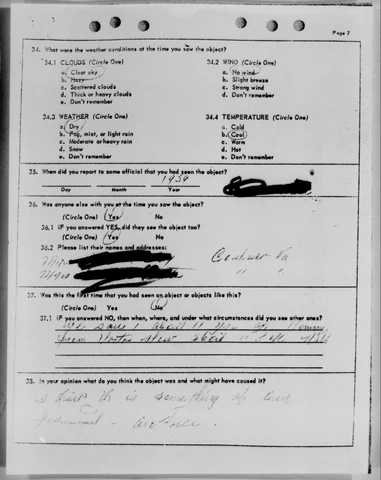 Page 7
34. What were the weather conditions at the time you saw the object?
34.1 CLOUDS (Circle One) 34.2 WIND (Circle One)
a. Clear sky a. No wind
b. Hazy b. Slight breeze
c. Scattered clouds c. Strong wind
d. Thick or heavy clouds d. Don't remember
e. Don't remember
34.3 WEATHER (Circle One) 34.4 TEMPERATURE (Circle One)
a. Dry a. Cold
b. Fog, mist, or light rain b. Cool
c. Moderate or heavy rain c. Warm
d. Snow d. Hot
e. Don't remember e. Don't remember
35. When did you report to some official that you had seen the object?
1959
Day Month Year
36. Was anyone else with you at the time you saw the object?
(Circle One) Yes No
36.1 IF you answered YES, did they see the object too?
(Circle One) Yes No
36.2 Please list their names and addresses:
Va
" "
37. Was this the first time that you had seen an object or objects like this?
(Circle One) Yes No
37.1 IF you answered NO, then when, where, and under what circumstances did you see other ones?
We saw 1 about 11
from about 11
38. In your opinion what do you think the object was and what might have caused it?
I think it is something of our
government - air Force.